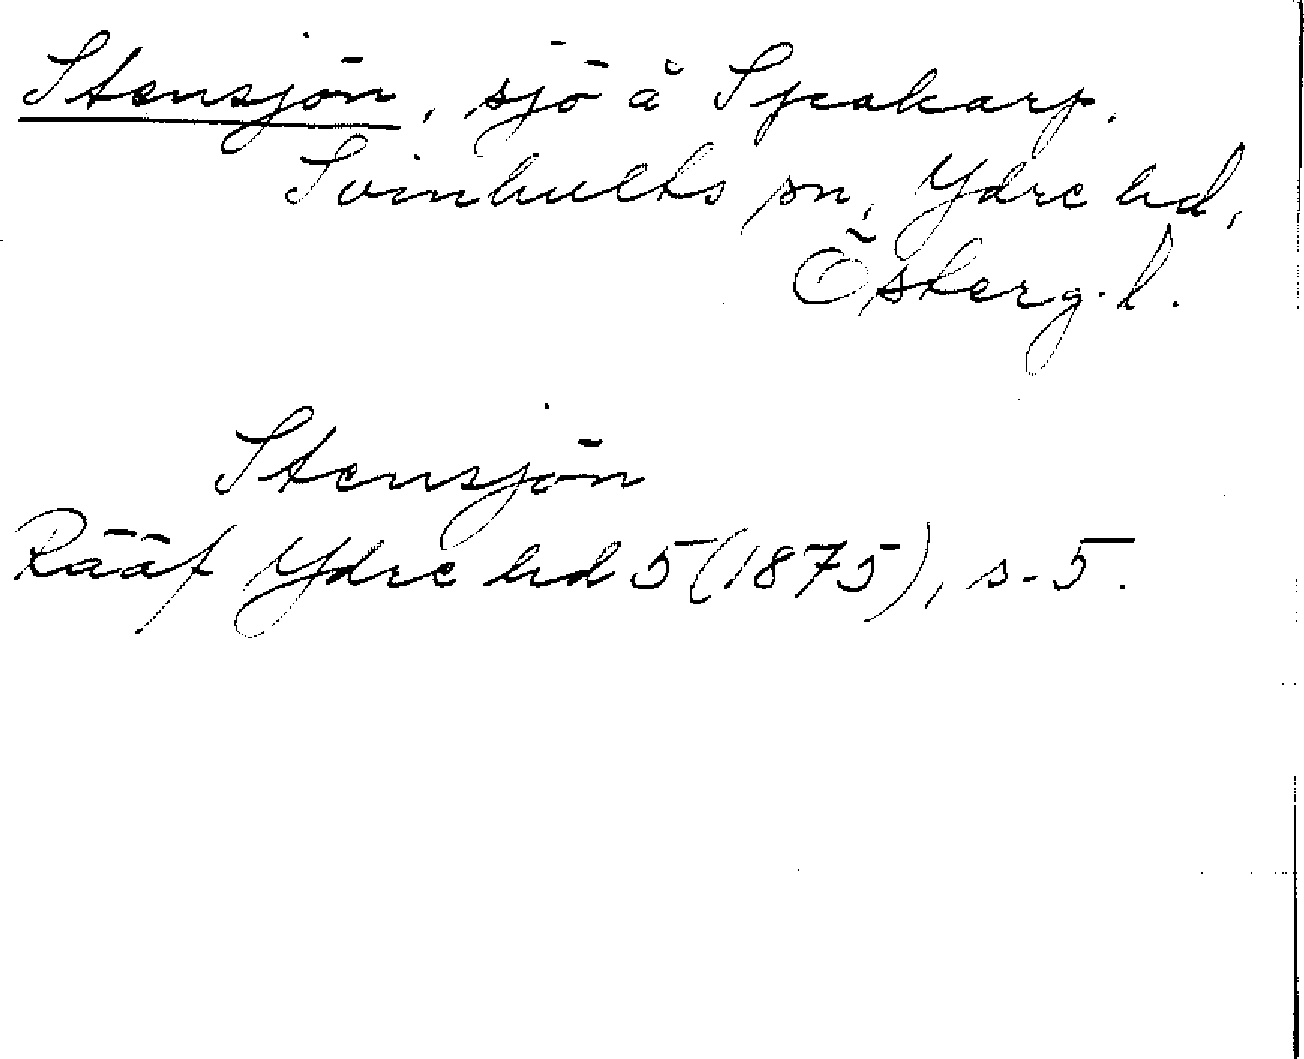 Stensjön, sjö å Speakarp.
Svinhults sn, Ydre hd,
Österg. l.
Stensjön
Rääf Ydre hd 5 (1875), s. 5.